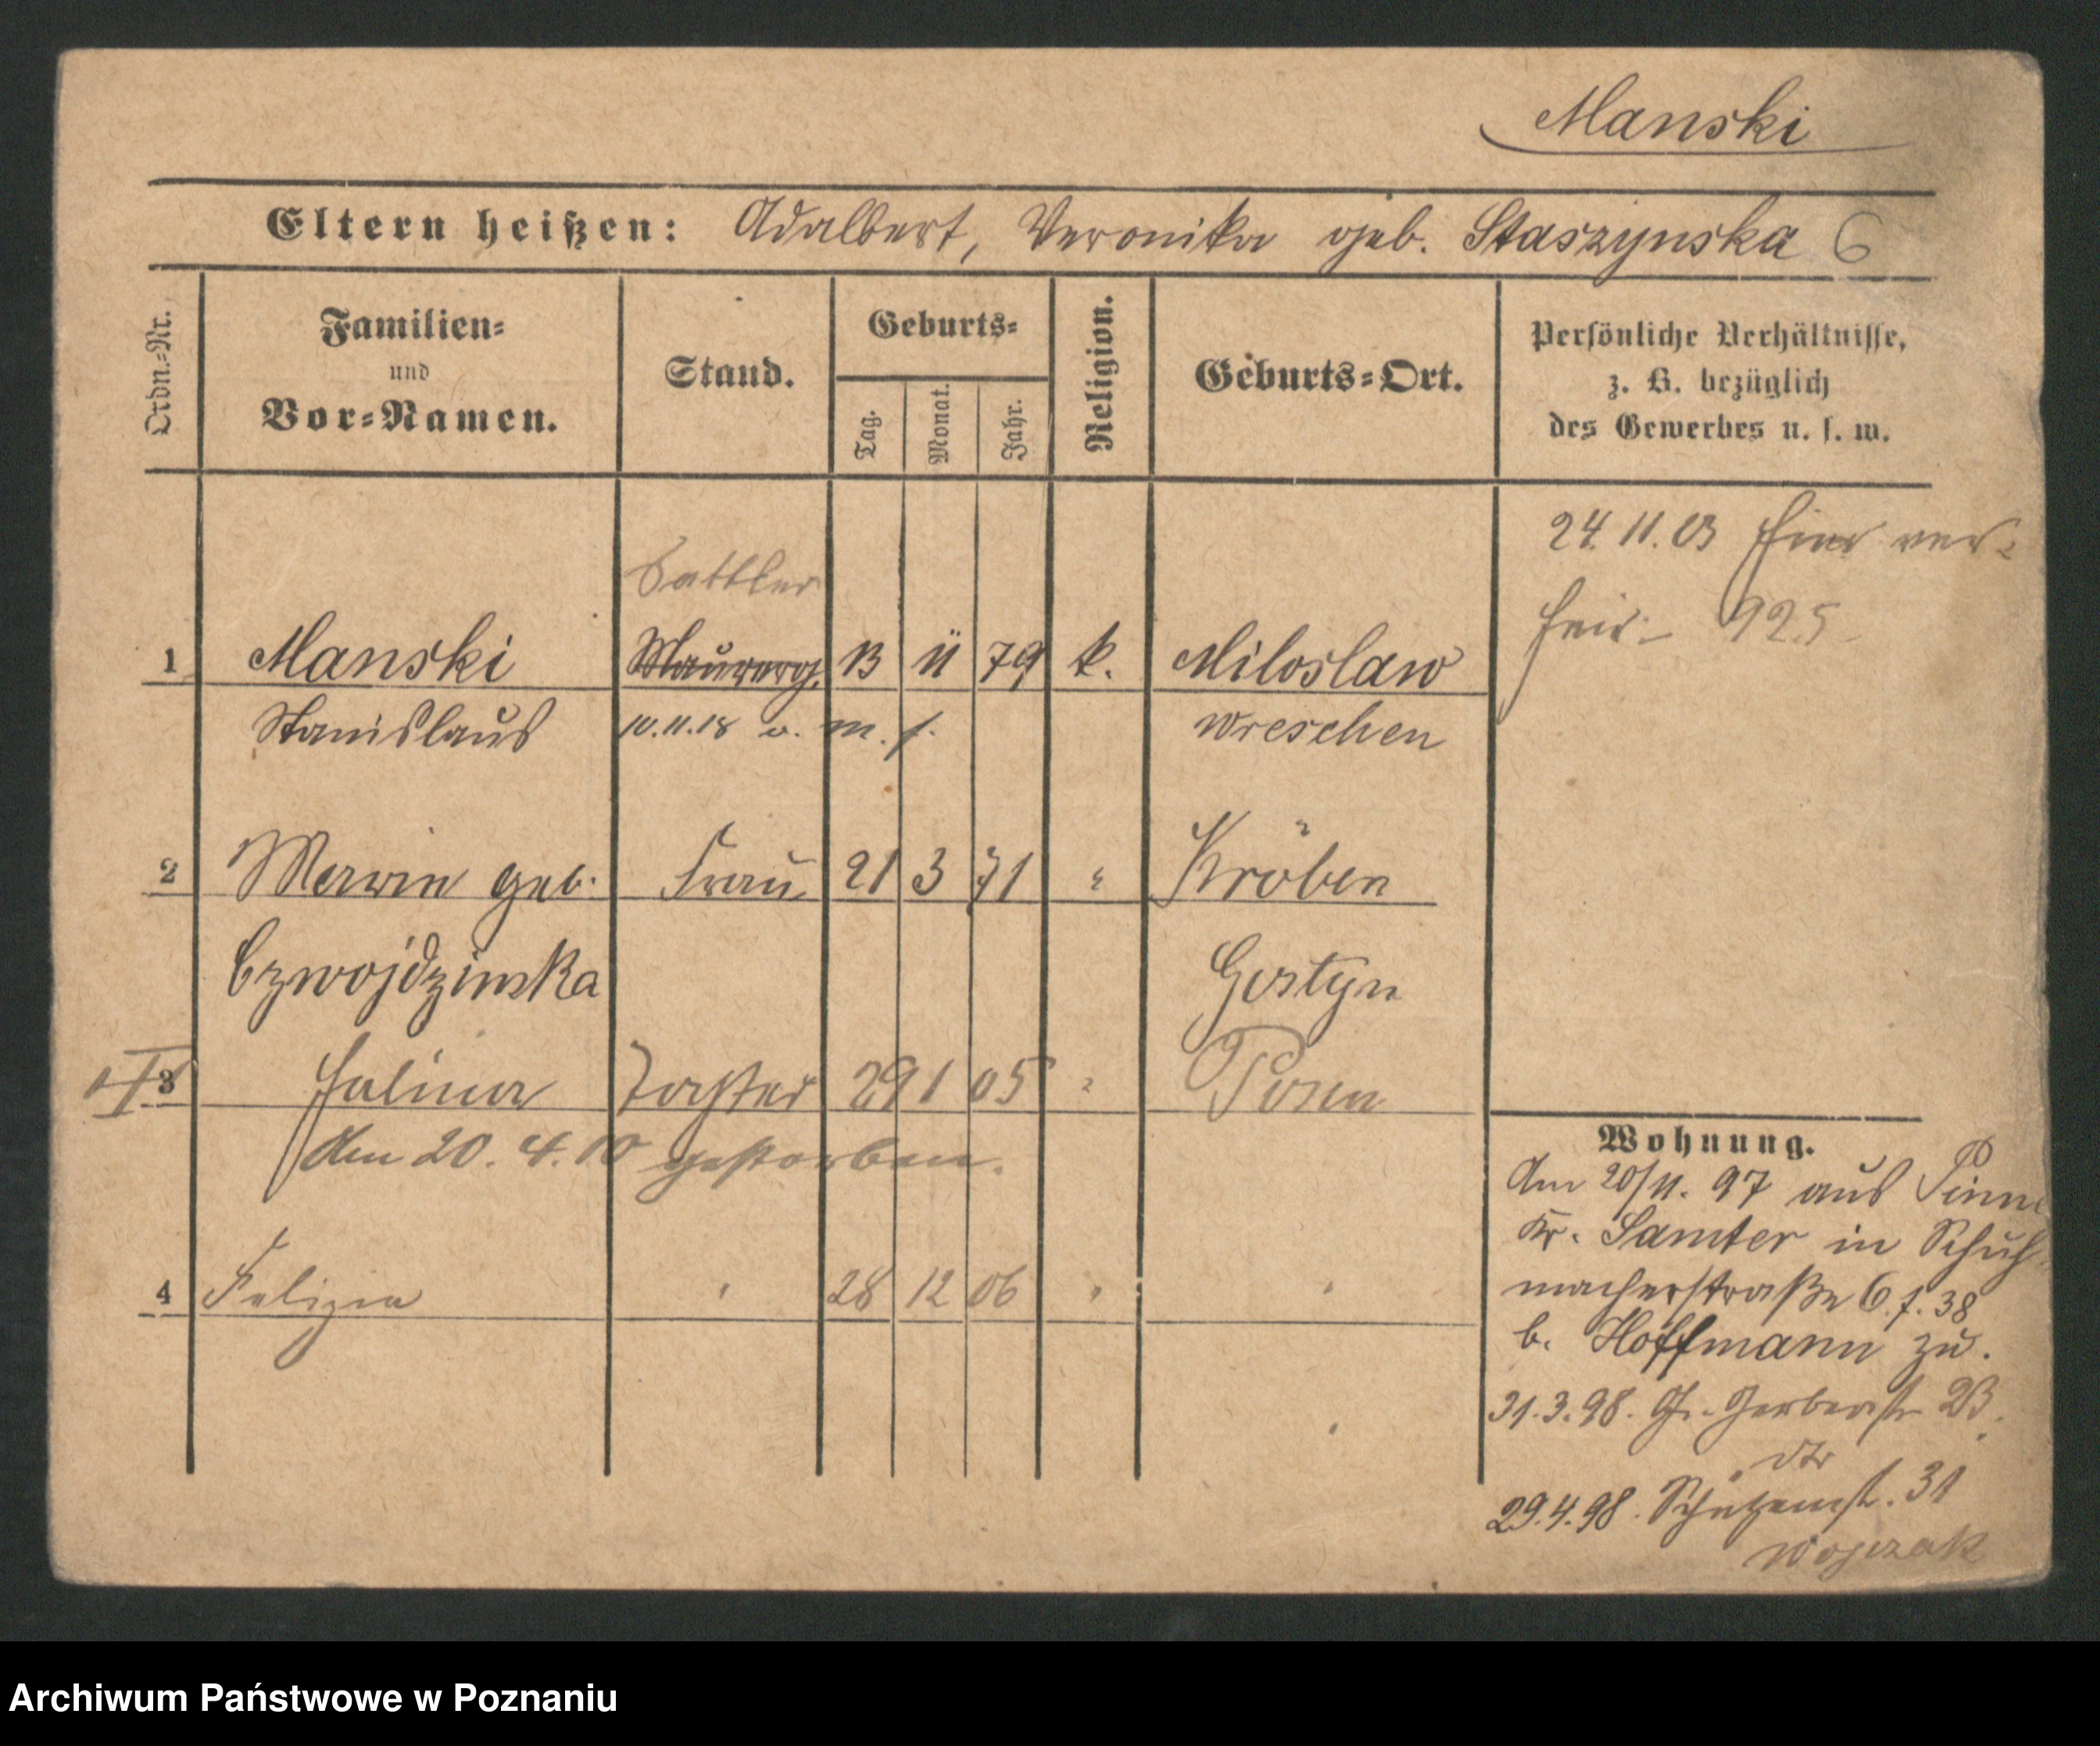 Manski
Eltern heißen: Adalbert, Veronika geb. Staszynska 6
Ordn.=Nr.
Familien=
und
Vor=Namen.
Stand.
Geburts=
Tag.
Monat.
Jahr.
Religion.
Geburts=Ort.
Persönliche Verhältnisse,
z. B. bezüglich
des Gewerbes u. s. w.
24. 11. 03 hier ver=
heir. 925
Sattler
1 Manski Maurerg. 13 11 79 k. Miloslaw
Stanislaus 10.11.18 v. m. f. Wreschen
2 geb. Frau 21 3 71 " Kröben
Czwojdzinska Gostyn
3 Halina Tochter 29 1 05 " Posen
Am 20. 4. 10 gestorben.
4 Felizia " 28 12 06 " "
Wohnung.
Am 20/11. 97 aus Pinne
Kr. Samter in Schuh=
macherstraße 6 f. 38
b. Hoffmann zu.
31.3.98. Gr. Gerberstr 23.
29.4.98. Schützenstr. 31